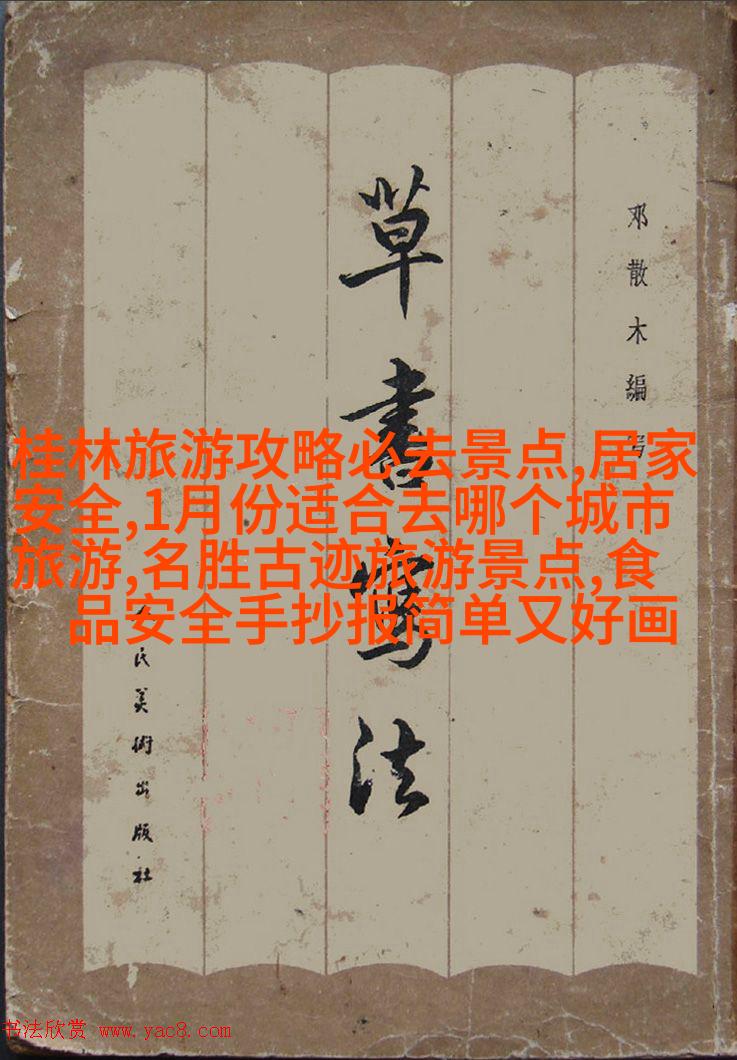 邓散木編写
草書寫法
民美術出版社
桂林旅游攻略必去景点,居家
安全,1月份适合去哪个城市
旅游,名胜古迹旅游景点,食
品安全手抄报简单又好画
书法欣赏 www.yac8.com